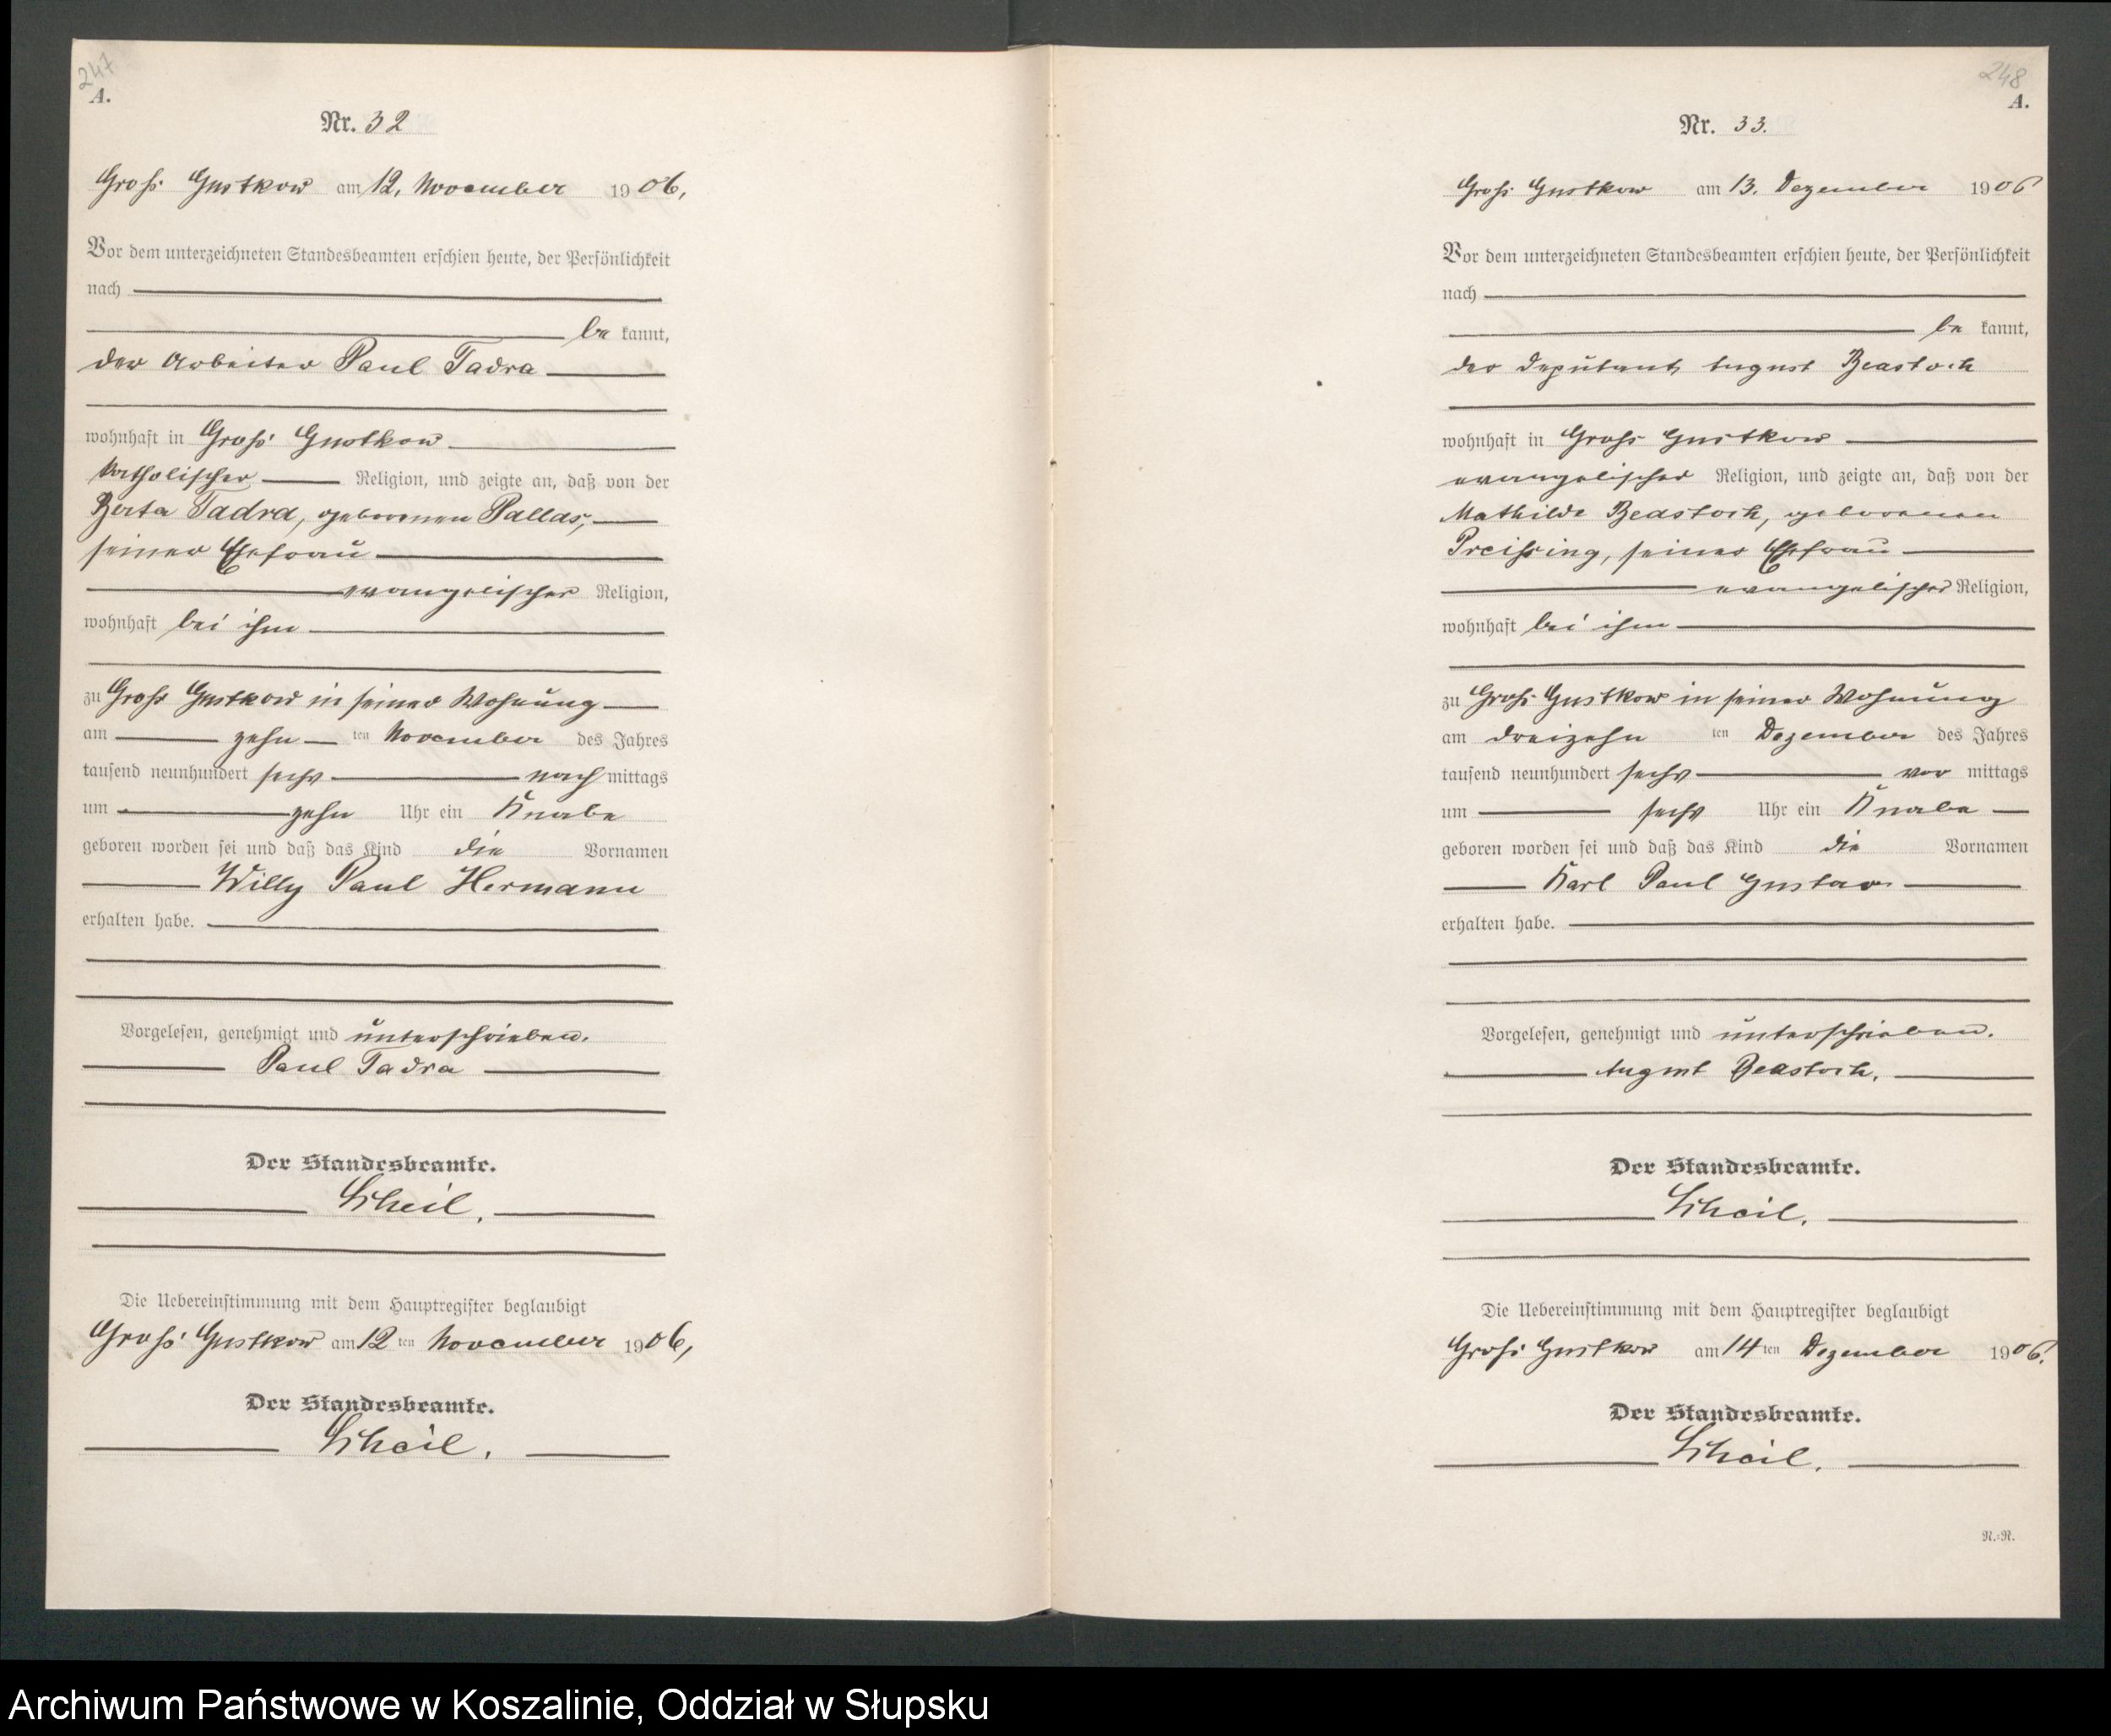 247
A.
Nr. 32
Groß Gustkow am 12. November 1906,
Vor dem unterzeichneten Standesbeamten erschien heute, der Persönlichkeit
nach
be kannt,
der Arbeiter Paul Tadra
wohnhaft in Groß Gustkow
katholischer Religion, und zeigte an, daß von der
Berta Tadra, geborenen Pallas,
seiner Ehefrau
evangelischer Religion,
wohnhaft bei ihm
zu Groß Gustkow in seiner Wohnung
am zehn ten November des Jahres
tausend neunhundert sechs nach mittags
um zehn Uhr ein Knabe
geboren worden sei und daß das Kind die Vornamen
Willy Paul Hermann
erhalten habe.
Vorgelesen, genehmigt und unterschrieben.
Paul Tadra
Der Standesbeamte.
Scheil.
Die Uebereinstimmung mit dem Hauptregister beglaubigt
Groß Gustkow am 12 ten November 1906,
Der Standesbeamte.
Scheil.
248
A.
Nr. 33.
Groß Gustkow am 13. Dezember 1906
Vor dem unterzeichneten Standesbeamten erschien heute, der Persönlichkeit
nach
be kannt,
der Deputant August Beastoch
wohnhaft in Groß Gustkow
evangelischer Religion, und zeigte an, daß von der
Mathilde Beastoch, geborenen
Preißing, seiner Ehefrau
evangelischer Religion,
wohnhaft bei ihm
zu Groß Gustkow in seiner Wohnung
am dreizehn ten Dezember des Jahres
tausend neunhundert sechs vor mittags
um sechs Uhr ein Knabe
geboren worden sei und daß das Kind die Vornamen
Karl Paul Gustav
erhalten habe.
Vorgelesen, genehmigt und unterschrieben.
August Beastoch.
Der Standesbeamte.
Scheil.
Die Uebereinstimmung mit dem Hauptregister beglaubigt
Groß Gustkow am 14 ten Dezember 1906.
Der Standesbeamte.
Scheil.
N.=N.
Archiwum Państwowe w Koszalinie, Oddział w Słupsku